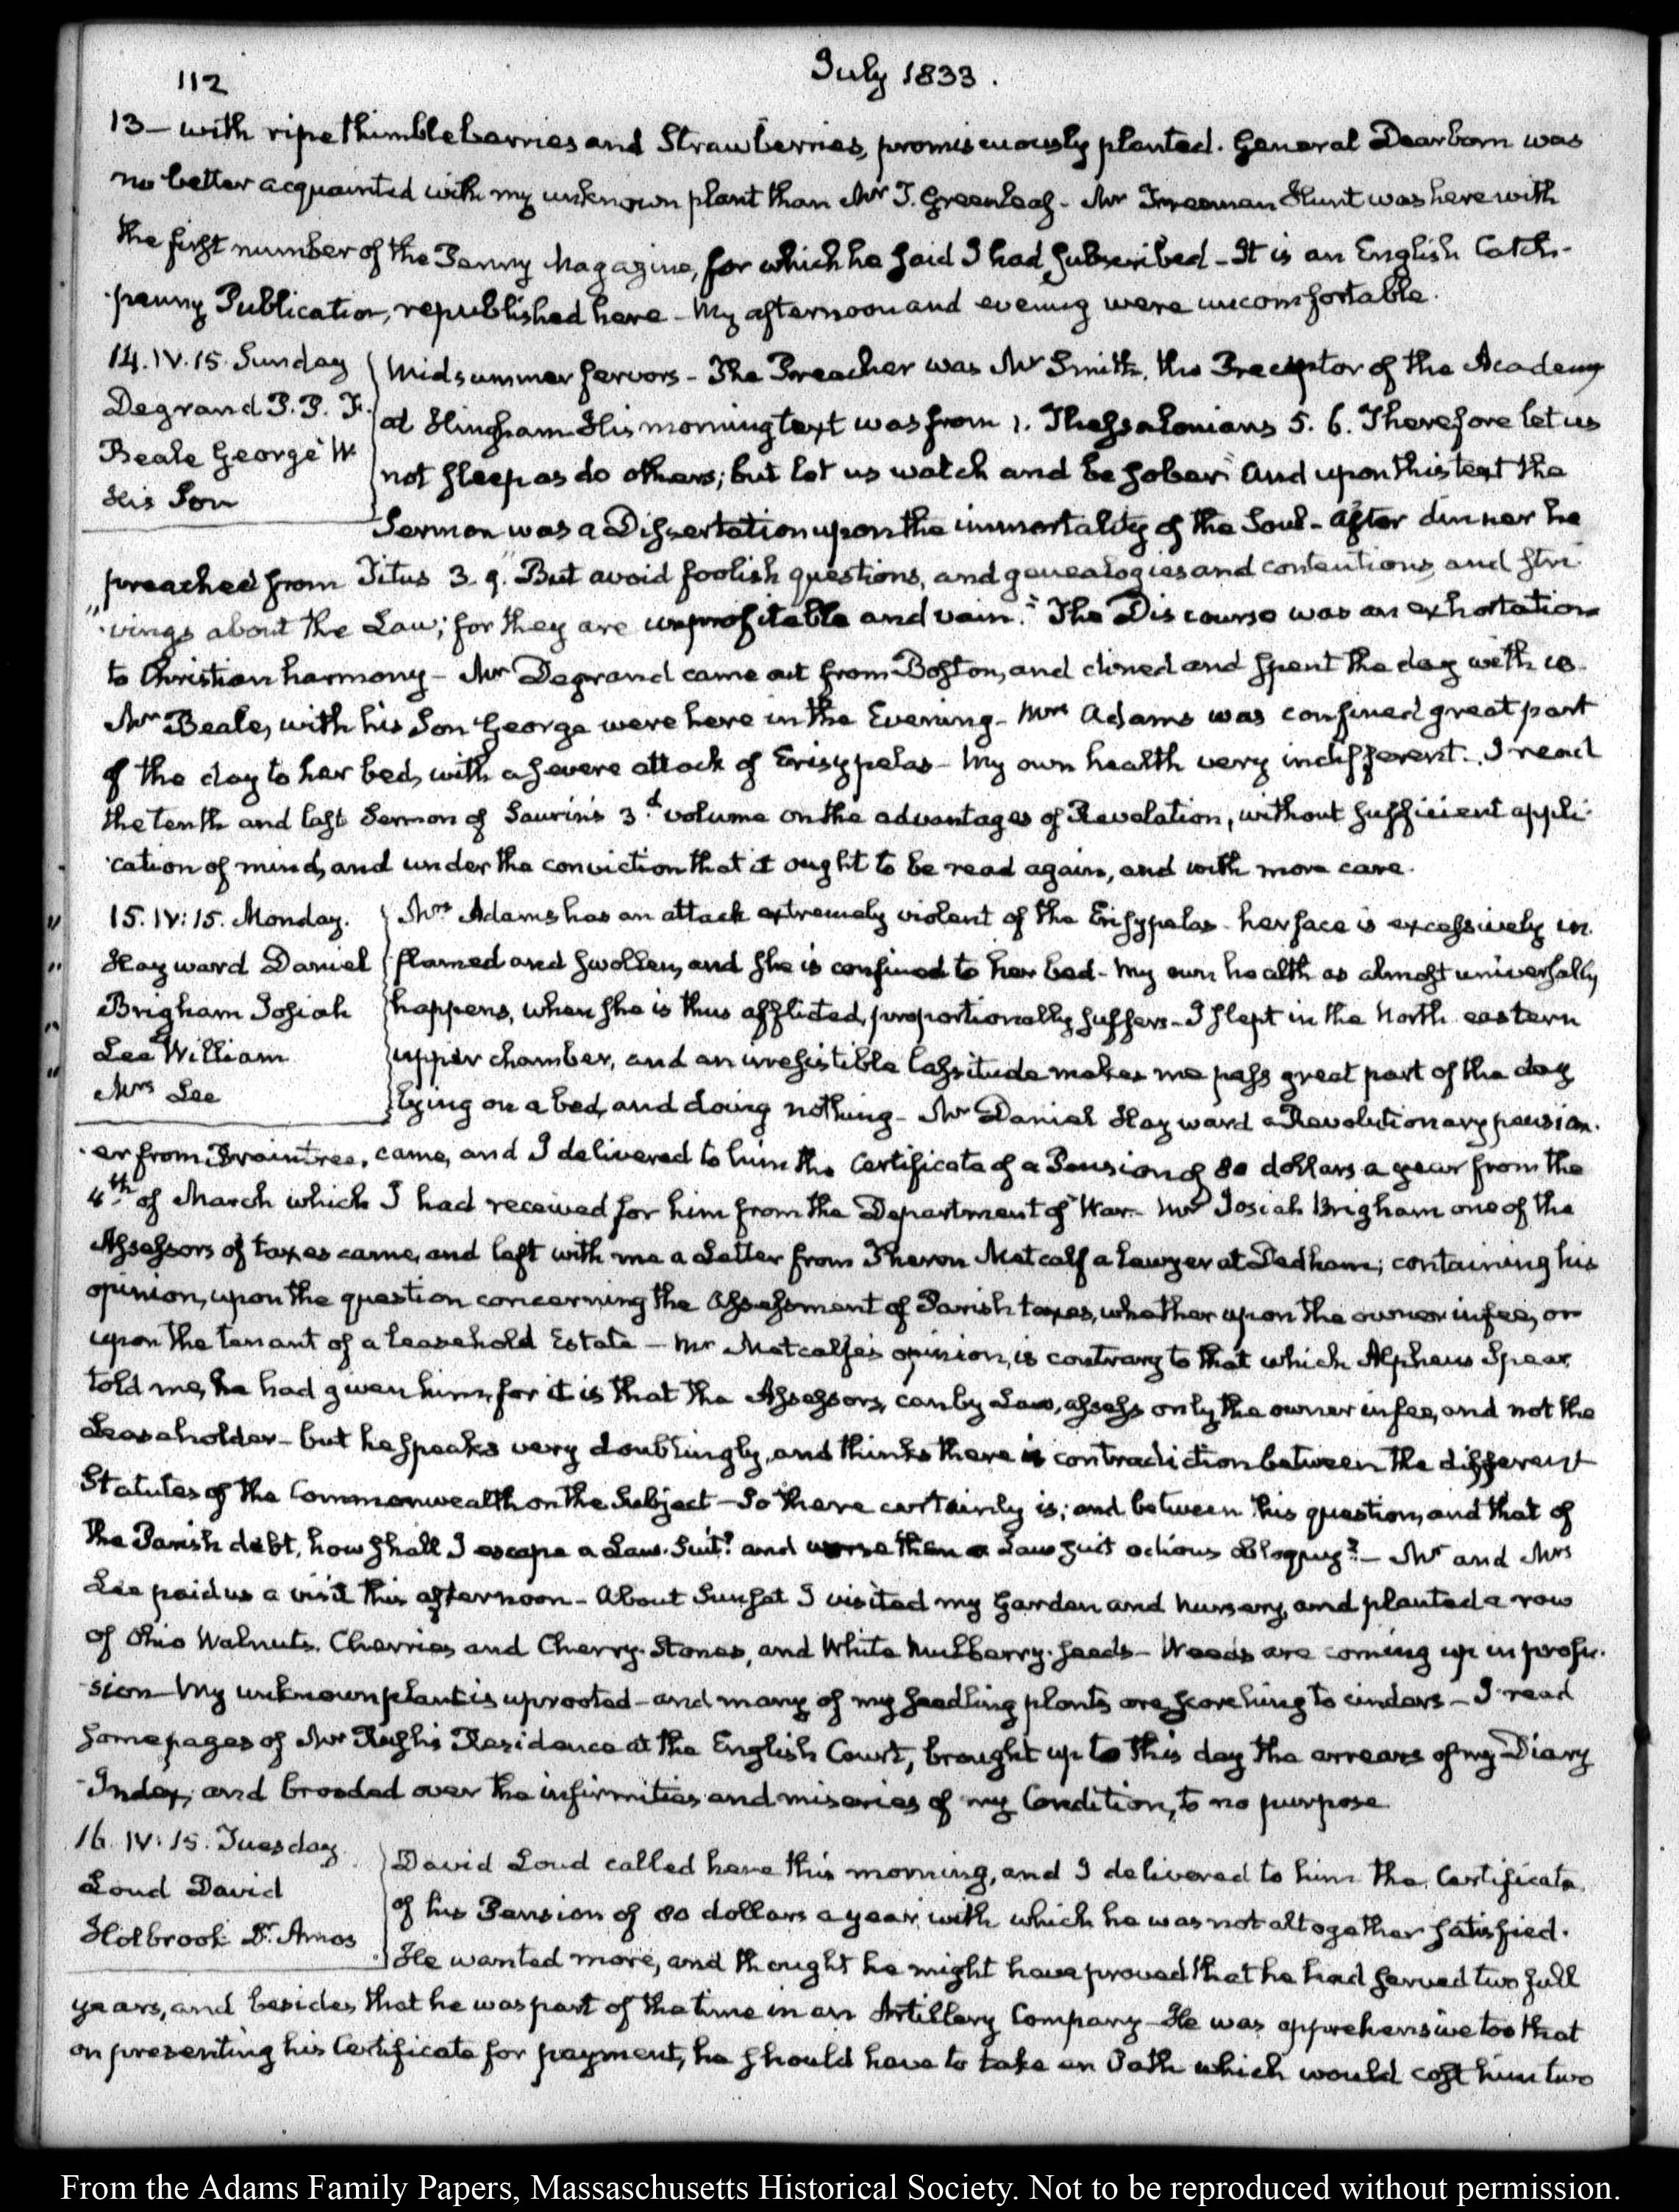 112
July 1833.
13 — with ripe thimbleberries and Strawberries, promiscuously planted. General Dearborn was
no better acquainted with my unknown plant than Mr T. Greenleaf - Mr Freeman Hunt was here with
the first number of the Penny Magazine, for which he said I had subscribed - It is an English Catch-
-penny Publication, republished here - My afternoon and evening were uncomfortable.
14. IV. 15. Sunday
Degrand P. P. F.
Beale George W
His Son
Midsummer fervors - The Preacher was Mr Smith, the Preceptor of the Academy
at Hingham His morning text was from 1. Thessalonians 5. 6. Therefore let us
not sleep as do others; but let us watch and be sober" And upon this text the
Sermon was a Dissertation upon the immortality of the Soul - After dinner he
preached from Titus 3. 9. "But avoid foolish questions, and genealogies and contentions, and stri-
"-vings about the Law; for they are unprofitable and vain." The Discourse was an exhortation
to Christian harmony - Mr Degrand came out from Boston, and dined and spent the day with us.
Mr Beale, with his Son George were here in the Evening - Mrs Adams was confined great part
of the day to her bed, with a severe attack of Erisypelas - My own health very indifferent. I read
the tenth and last Sermon of Saurin's 3d volume on the advantages of Revelation, without sufficient appli-
-cation of mind, and under the conviction that it ought to be read again, and with more care.
15. IV: 15. Monday.
Hayward Daniel
Brigham Josiah
Lee William
Mrs Lee
Mrs Adams has an attack extremely violent of the Erisypelas - her face is excessively in-
flamed and swollen, and she is confined to her bed - My own health as almost universally
happens, when she is thus afflicted, proportionally suffers - I slept in the North eastern
upper chamber, and an irresistible lassitude makes me pass great part of the day
lying on a bed, and doing nothing - Mr Daniel Hayward a Revolutionary pension-
-er from Braintree, came, and I delivered to him the Certificate of a Pension of 80 dollars a year from the
4th of March which I had received for him from the Department of War - Mr Josiah Brigham one of the
Assessors of taxes came, and left with me a Letter from Theron Metcalf a Lawyer at Dedham; containing his
opinion, upon the question concerning the Assessment of Parish taxes, whether upon the owner in fee, or
upon the tenant of a leasehold Estate — Mr Metcalf's opinion, is contrary to that which Alpheus Spear
told me, he had given him, for it is that the Assessors, can by Law, assess only the owner in fee, and not the
Leaseholder - but he speaks very doubtingly, and thinks there is contradiction between the different
Statutes of the Commonwealth on the Subject - So there certainly is; and between this question, and that of
the Parish debt, how shall I escape a Law-Suit? and worse than a Law suit odious obloquy? - Mr and Mrs
Lee paid us a visit this afternoon - About Sunset I visited my Garden and Nursery, and planted a row
of Ohio Walnuts, Cherries and Cherry-Stones, and White Mulberry-seeds - Weeds are coming up in profu-
-sion - My unknown plant is uprooted - and many of my seedling plants are scorching to cinders - I read
some pages of Mr Rush's Residence at the English Court, brought up to this day the arrears of my Diary
-Index, and brooded over the infirmities and miseries of my Condition, to no purpose
16. IV: 15. Tuesday.
Loud David
Holbrook Dr. Amos
David Loud called here this morning, and I delivered to him the Certificate
of his Pension of 80 dollars a year, with which he was not altogether satisfied.
He wanted more, and thought he might have proved that he had served two full
years, and besides that he was part of the time in an Artillery Company - He was apprehensive too that
on presenting his Certificate for payment, he should have to take an Oath which would cost him two
From the Adams Family Papers, Massachusetts Historical Society. Not to be reproduced without permission.